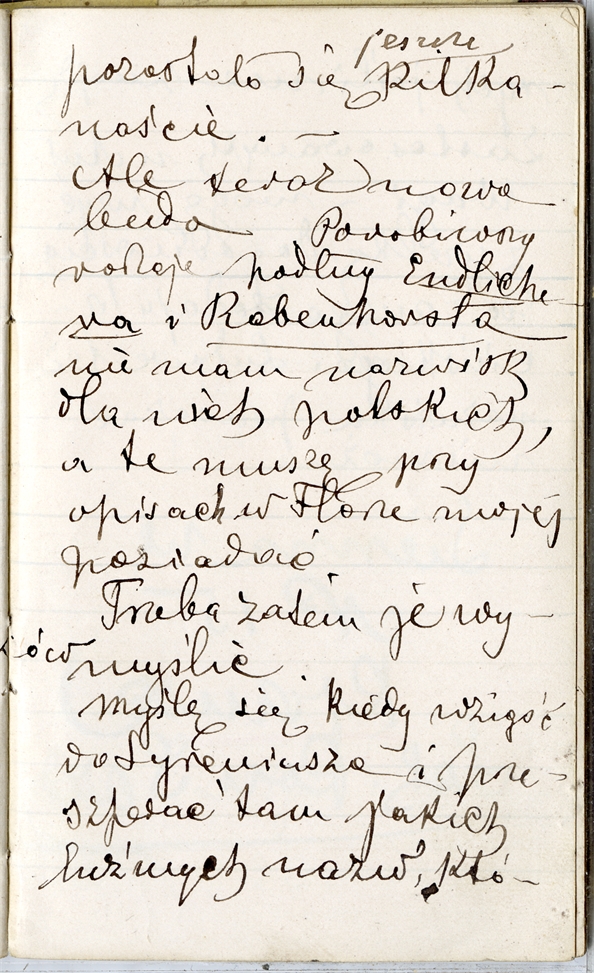 jeszcze
pozostało się kilka-
naście. —
Ale teraz nowa
bieda Porobiwszy
rodzaje podług Endliche-
ra i Rabenhorsta
nie mam nazwisk
dla nich polskich,
a te muszę przy
opisach w Florze mojej
posiadać.
Trzeba zatem je wy-
myślić.
Myślę się kiedy wziąść
do Syreniusza i prze-
szperać tam jakich
luźnych nazw, któ-